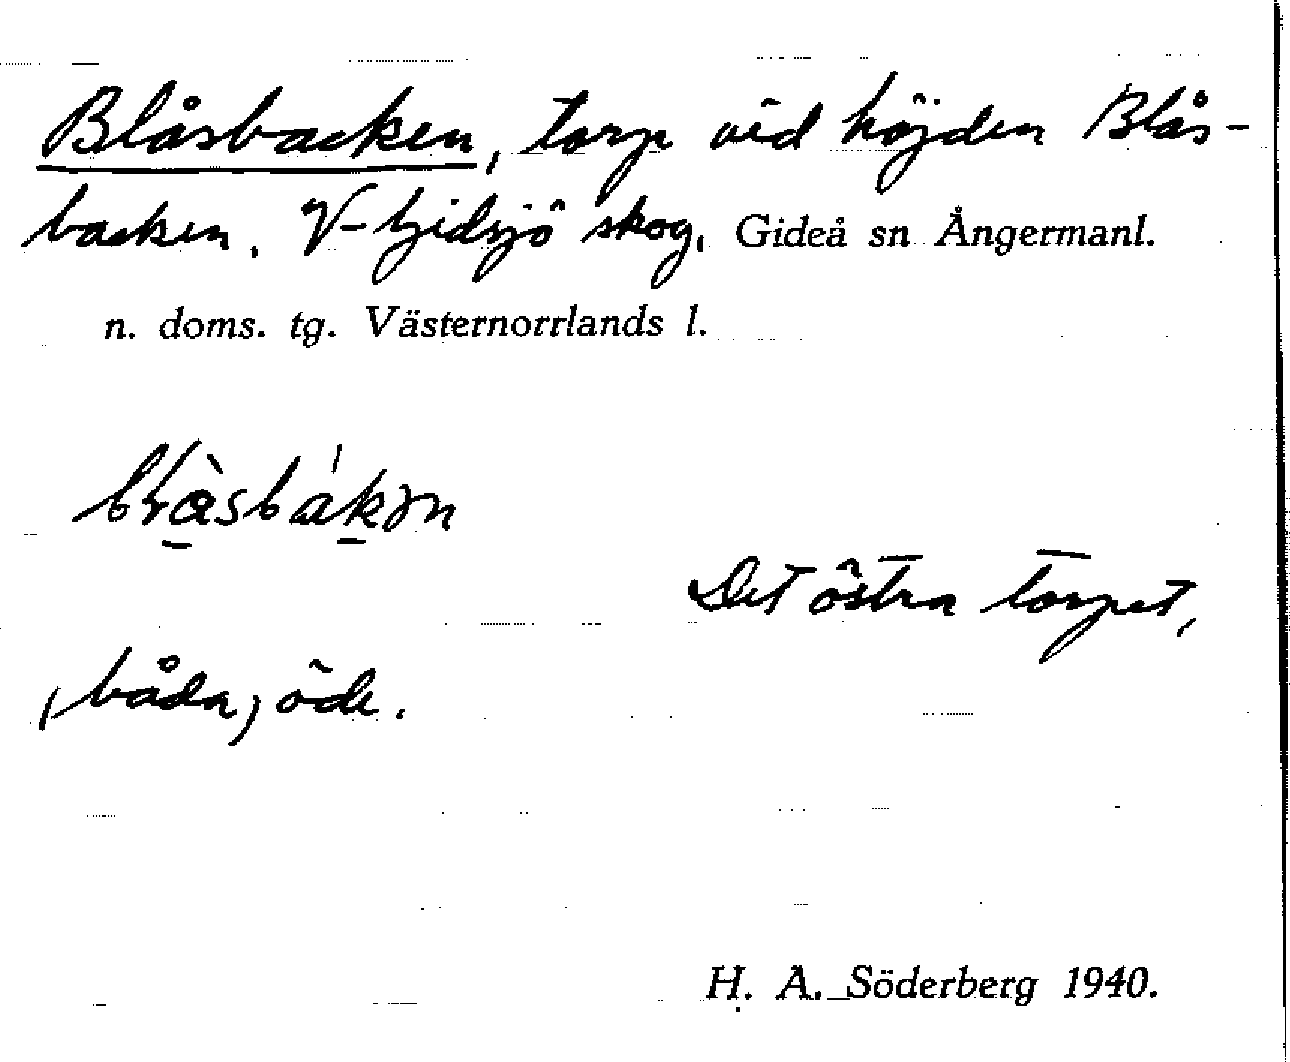 Blåsbacken, torp vid höjden Blås-
backen. V-Gidsjö skog, Gideå sn Ångermanl.
n. doms. tg. Västernorrlands l.
Det östra torpet,
(båda) öde.
H. A. Söderberg 1940.